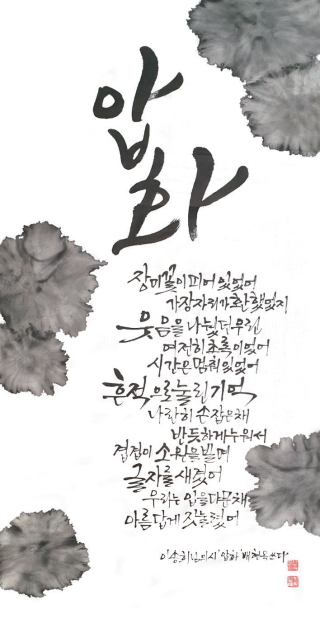 압화
장미꽃이 피어 있었어
가장자리가 환했었지
웃음을 나눴던 우린
여전히 초록이었어
시간은 멈춰 있었어
흔적으로 눌린 기억
나란히 손잡은 채
반듯하게 누워서
겹겹이 소원을 빌며
글자를 새겼어
우리는 입을 다문 채
아름답게 짓눌렸어
님의 시 '압화'
쓰다